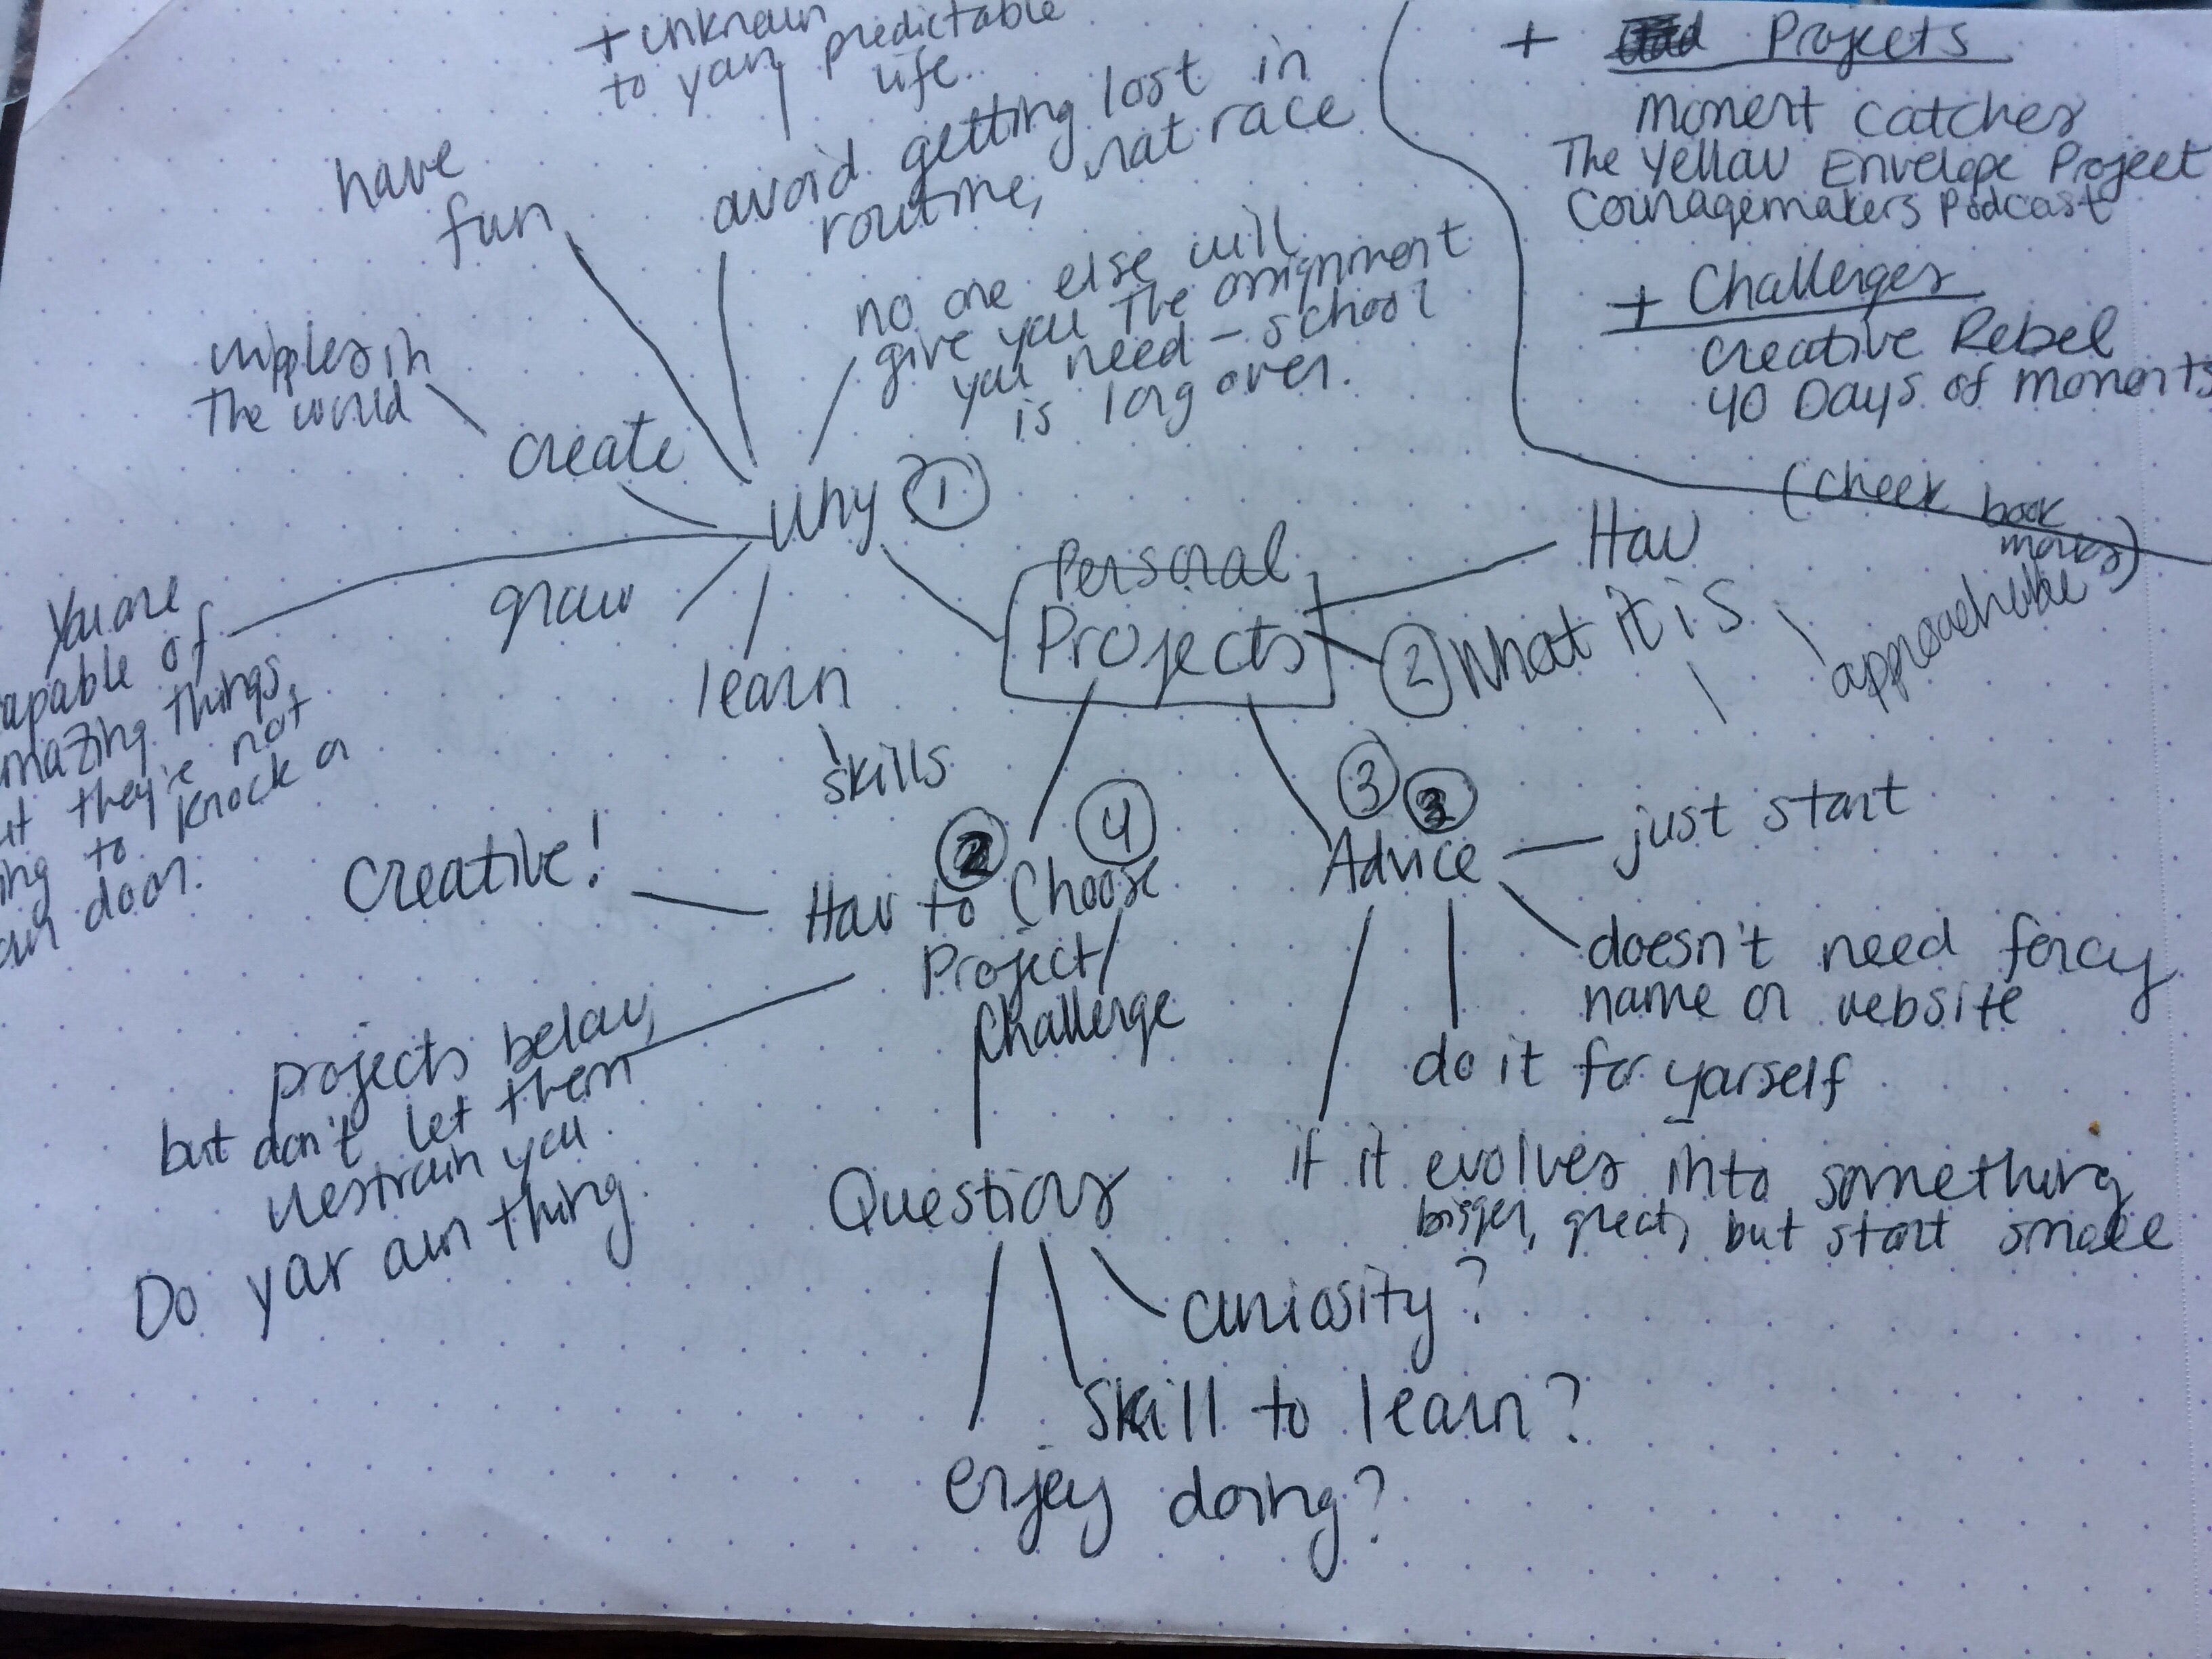 + unknown
to your predictable
life
have
fun
avoid getting lost in
routine, rat race
no one else will
give you the assignment
you need - school
is long over.
ripples in
the world
create
Why 1
You are
apable of
mazing things,
ut they're not
ing to knock on
our door.
grow
learn
skills
Personal
Projects
+ Projects
Moment Catcher
The Yellow Envelope Project
Couragemakers Podcast
+ Challenges
Creative Rebel
40 Days of Moments
(check book
marks)
How
2 What it is
approachable
3
Advice
just start
doesn't need fancy
name or website
do it for yourself
if it evolves into something
bigger, great, but start small
2 4
How to Choose
Project/
Challenge
Creative!
projects below,
but don't let them
restrain you.
Do your own thing
Questions
curiosity?
Skill to learn?
enjoy doing?